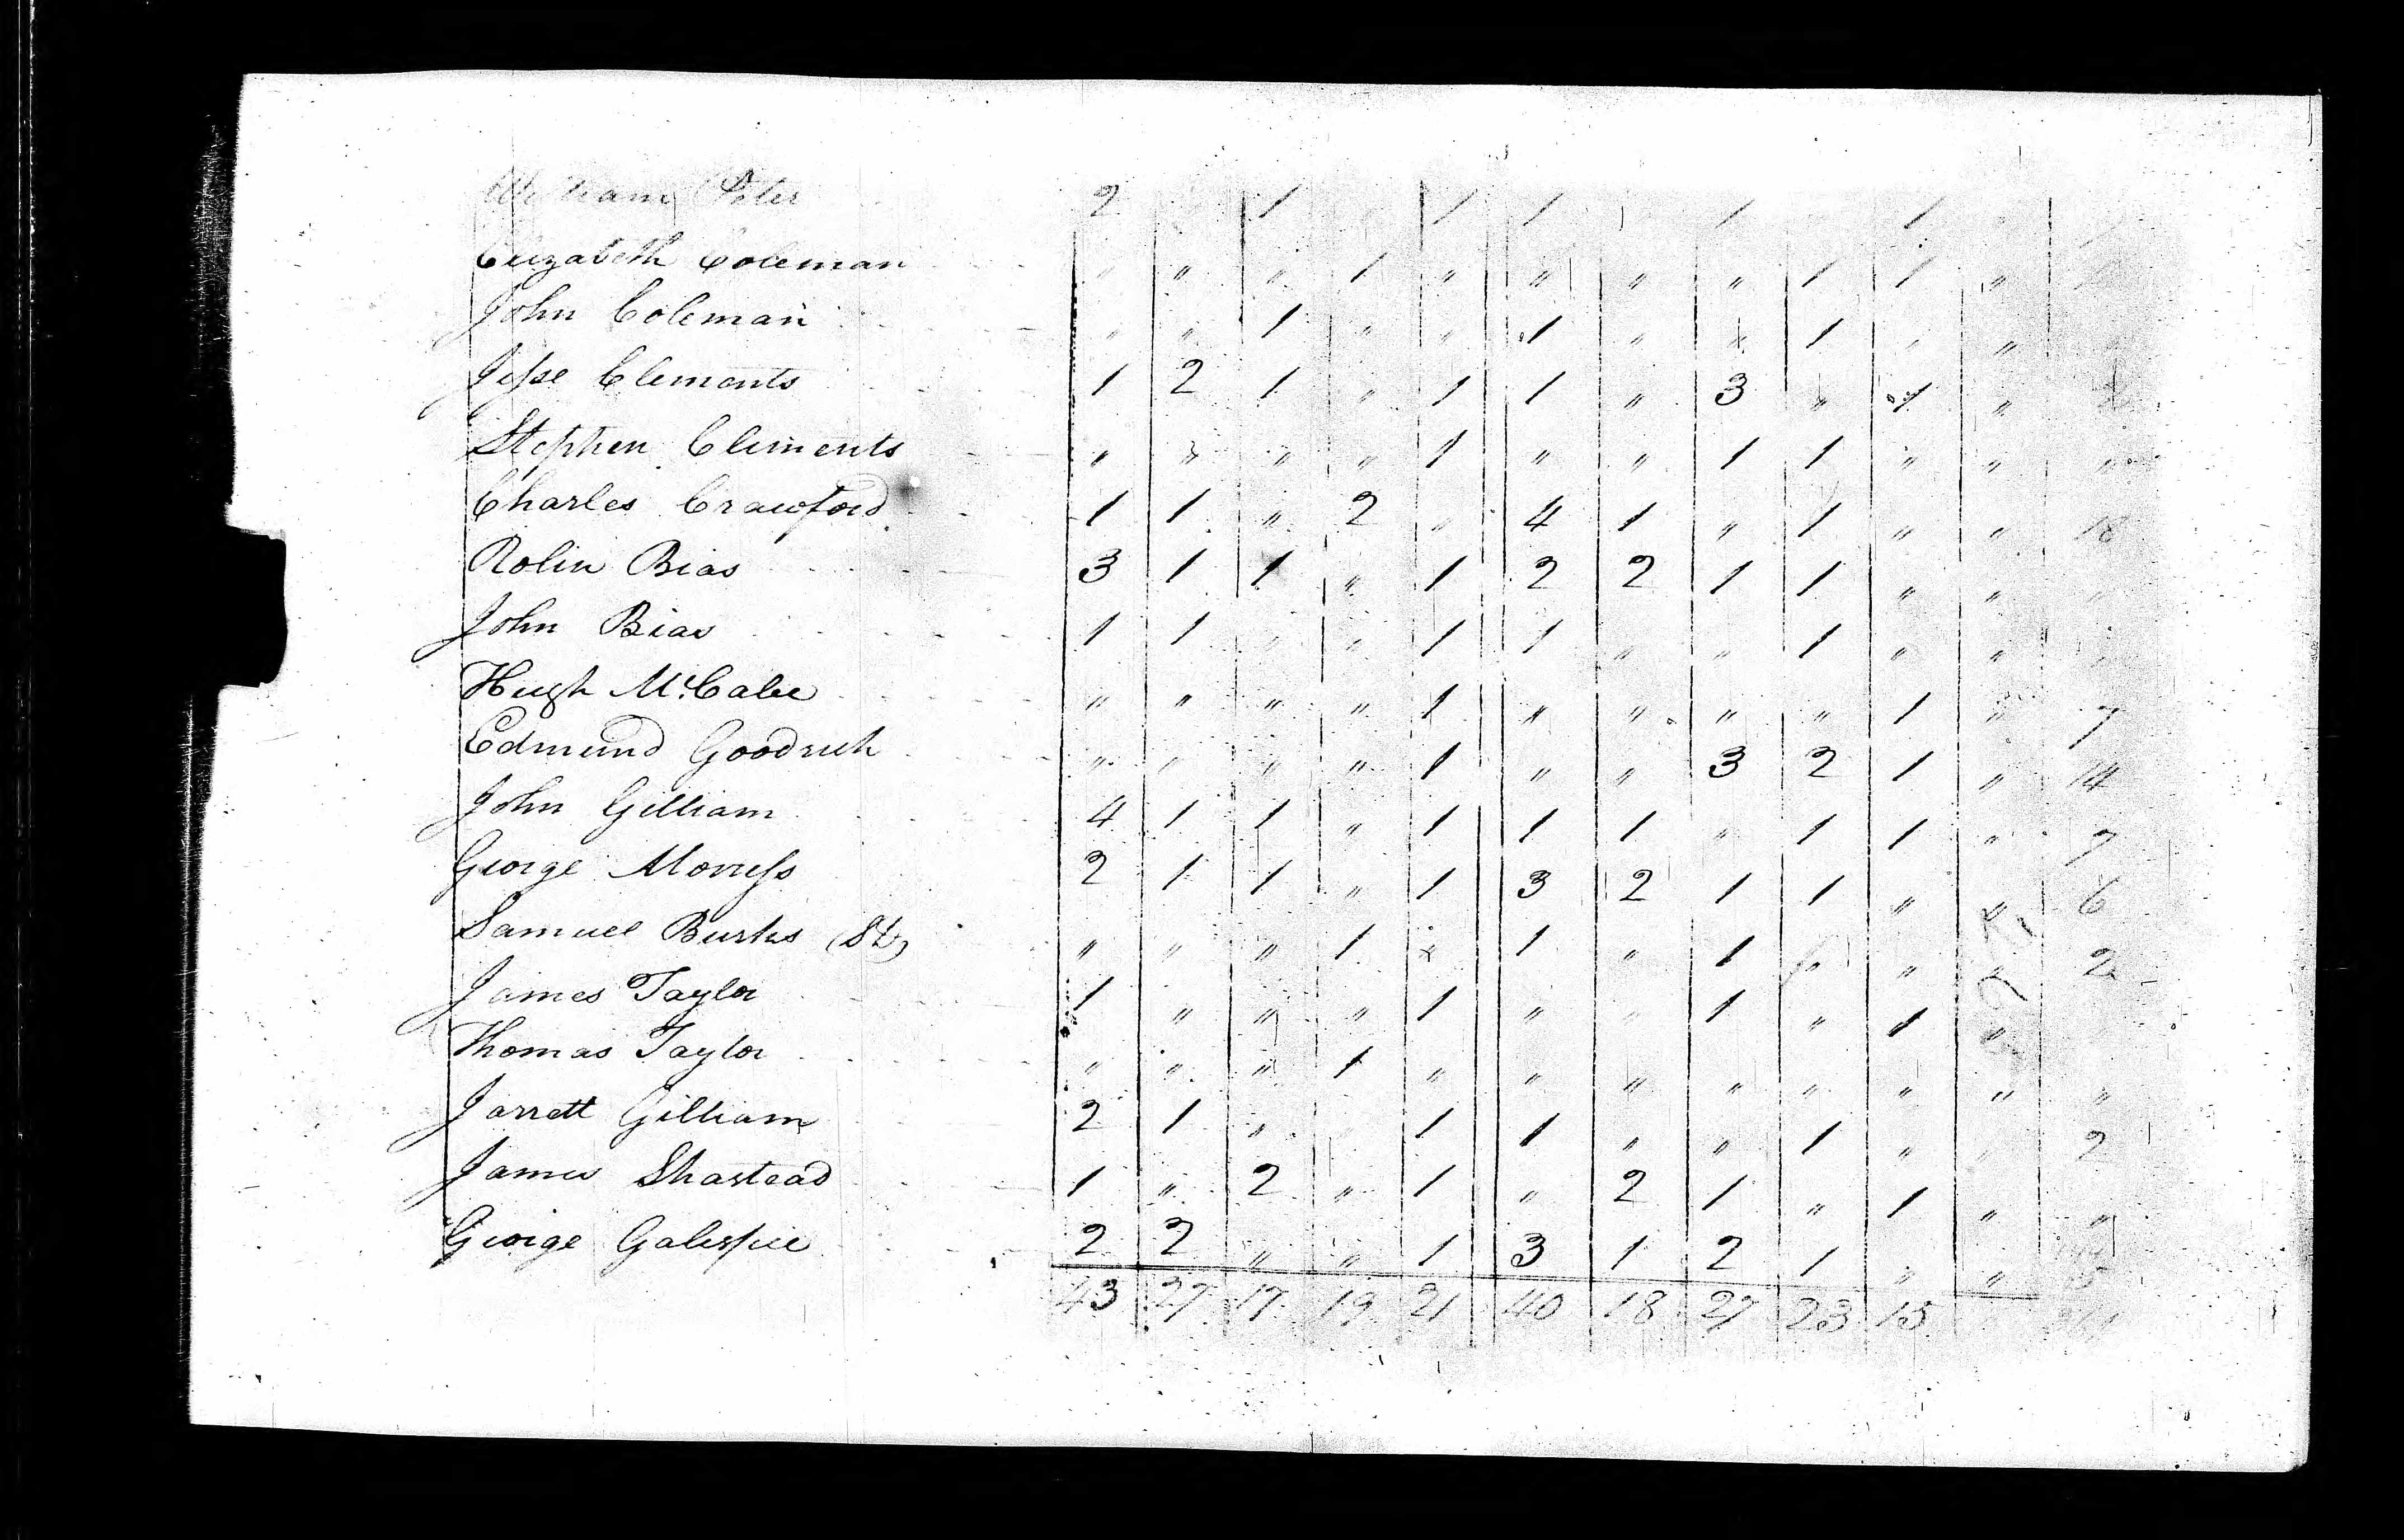 William Peter 2 1 1 1 1 1
Elizabeth Coleman " " " 1 " " " " 1 1 "
John Coleman " " 1 " " 1 " " 1 " " "
Jesse Clements 1 2 1 " 1 1 " 3 " 1 "
Stephen Clements " " " " 1 " " 1 1 " " "
Charles Crawford 1 1 " 2 " 4 1 " 1 " " 18
Rolin Bias 3 1 1 " 1 2 2 1 1 " " "
John Bias 1 1 " " 1 1 " " 1 " " "
Hugh McCabe " " " " 1 " " " " 1 " 7
Edmund Goodrich " " " " 1 " " 3 2 1 " 14
John Gilliam 4 1 1 " 1 1 1 " 1 1 " 7
George Morress 2 1 1 " 1 3 2 1 1 " " 6
Samuel Burks " " " 1 " 1 " 1 " " " 2
James Taylor 1 " " " 1 " " 1 " 1 "
Thomas Taylor " " " 1 " " " " " " " "
Jarrett Gilliam 2 1 " 1 1 " " 1 " " 2
James Shastead 1 " 2 " 1 " 2 1 " 1 " "
George Galespie 2 2 " " 1 3 1 2 1 " "
43 27 17 19 21 40 18 27 23 15